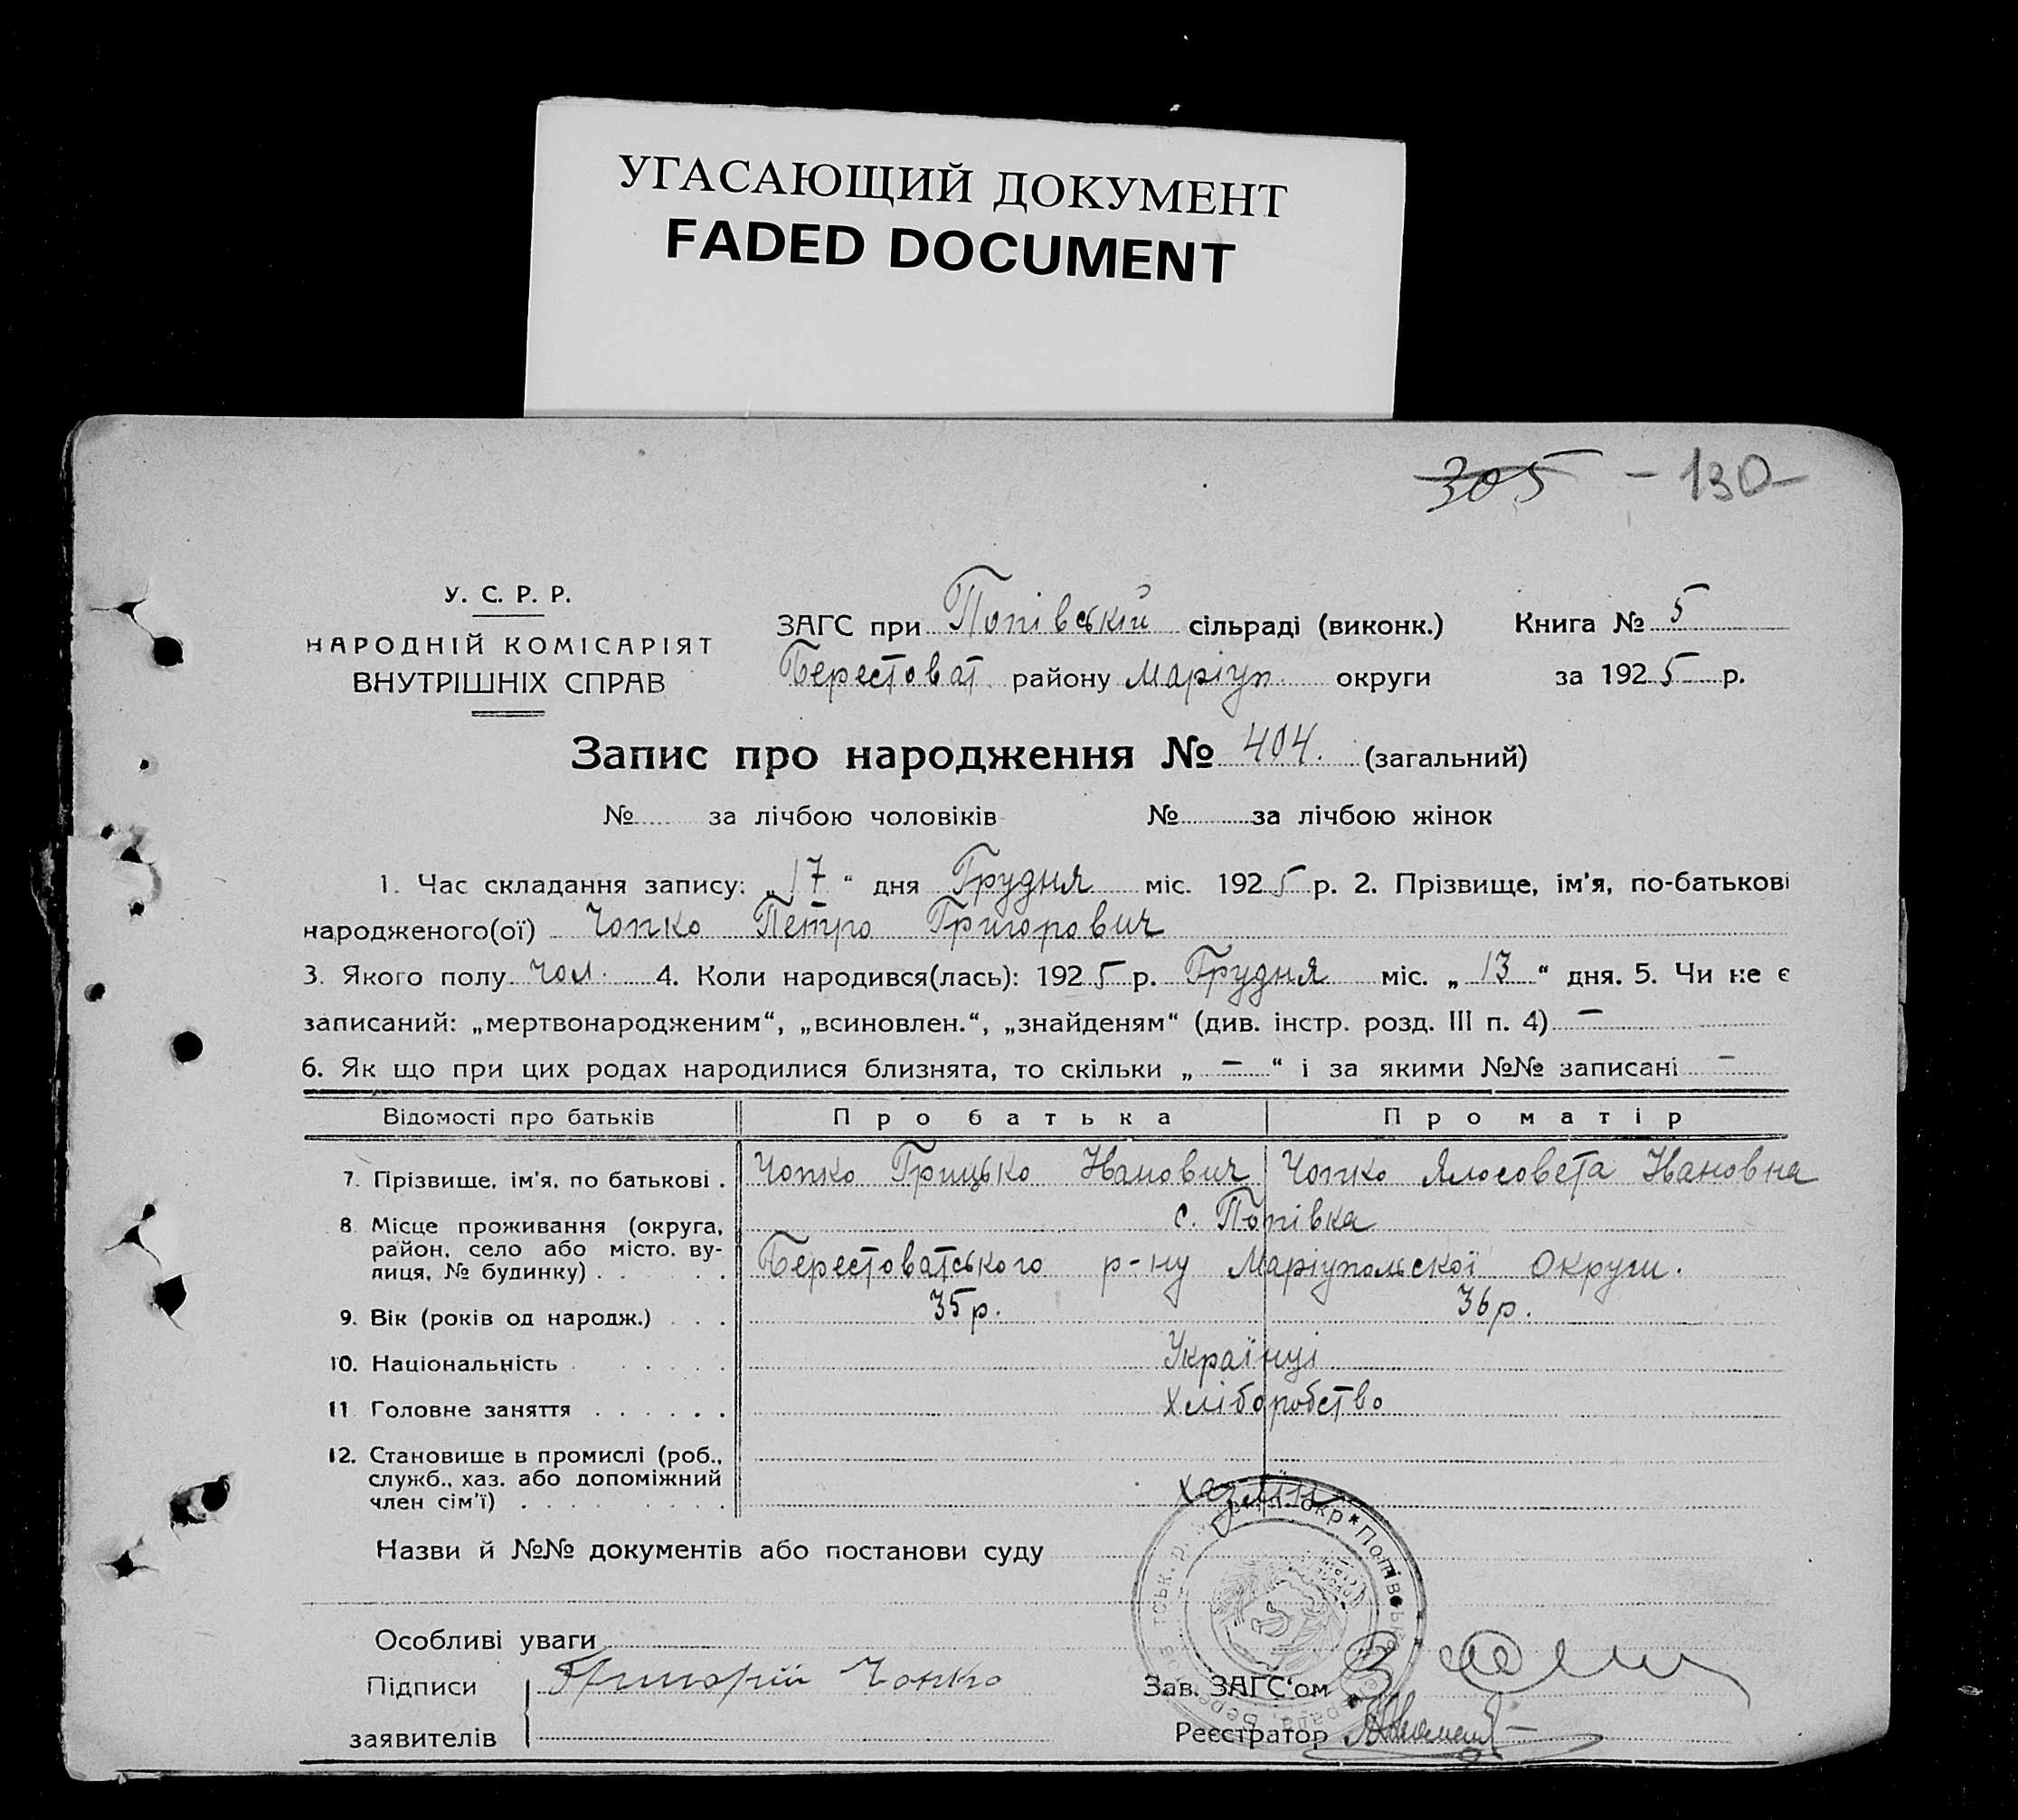 УГАСАЮЩИЙ ДОКУМЕНТ
FADED DOCUMENT
305 - 130-
У. С. Р. Р.
НАРОДНІЙ КОМІСАРІЯТ
ВНУТРІШНІХ СПРАВ
ЗАГС при Попівській сільраді (виконк.) Книга № 5
Берестоват району Маріуп округи за 1925 р.
Запис про народження № 404. (загальний)
№ за лічбою чоловіків № за лічбою жінок
1. Час складання запису: „17" дня Грудня міс. 1925 р. 2. Прізвище, ім'я, по-батькові
народженого(ої) Чопко Петро Григорович
3. Якого полу чол. 4. Коли народився(лась): 1925 р. Грудня міс. „13" дня. 5. Чи не є
записаний: „мертвонародженим", „всиновлен.", „знайденям" (див. інстр. розд. III п. 4) —
6. Як що при цих родах народилися близнята, то скільки „—" і за якими №№ записані —
Відомості про батьків Про батька Про матір
7. Прізвище, ім'я, по батькові . Чопко Грицько Іванович Чопко Ялосовета Івановна
8 Місце проживання (округа, с. Попівка
район, село або місто, ву-
лиця, № будинку) . . . . Берестоватського р-ну Маріупольскої округи.
9. Вік (років од народж.) . . . 35 р. 36 р.
10. Національність . . . . . Українці
11 Головне заняття . . . . . . хліборобство
12. Становище в промислі (роб.,
служб., хаз. або допоміжний
член сім'ї) . . . . . . . . . хазяїн
Назви й №№ документів або постанови суду
Особливі уваги
Підписи Григорій Чопко Зав. ЗАГС'ом
заявителів Реєстратор